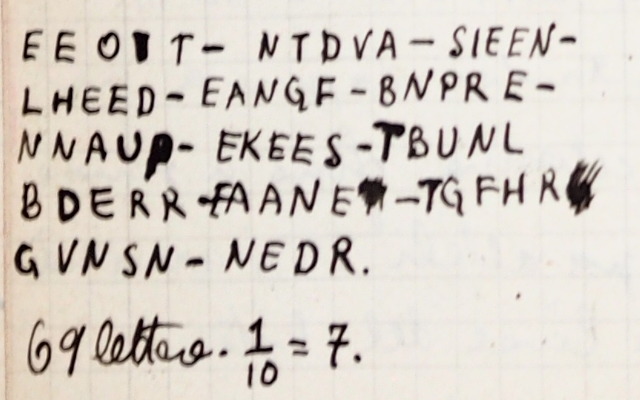 EEOIT- NTDVA - SIEEN-
LHEED - EANGF - BNPRE -
NNAUP- EKEES - TBUNL
BDERR - FAANE - TGFHR
GVNSN - NEDR.
69 lettere. 1/10 = 7.